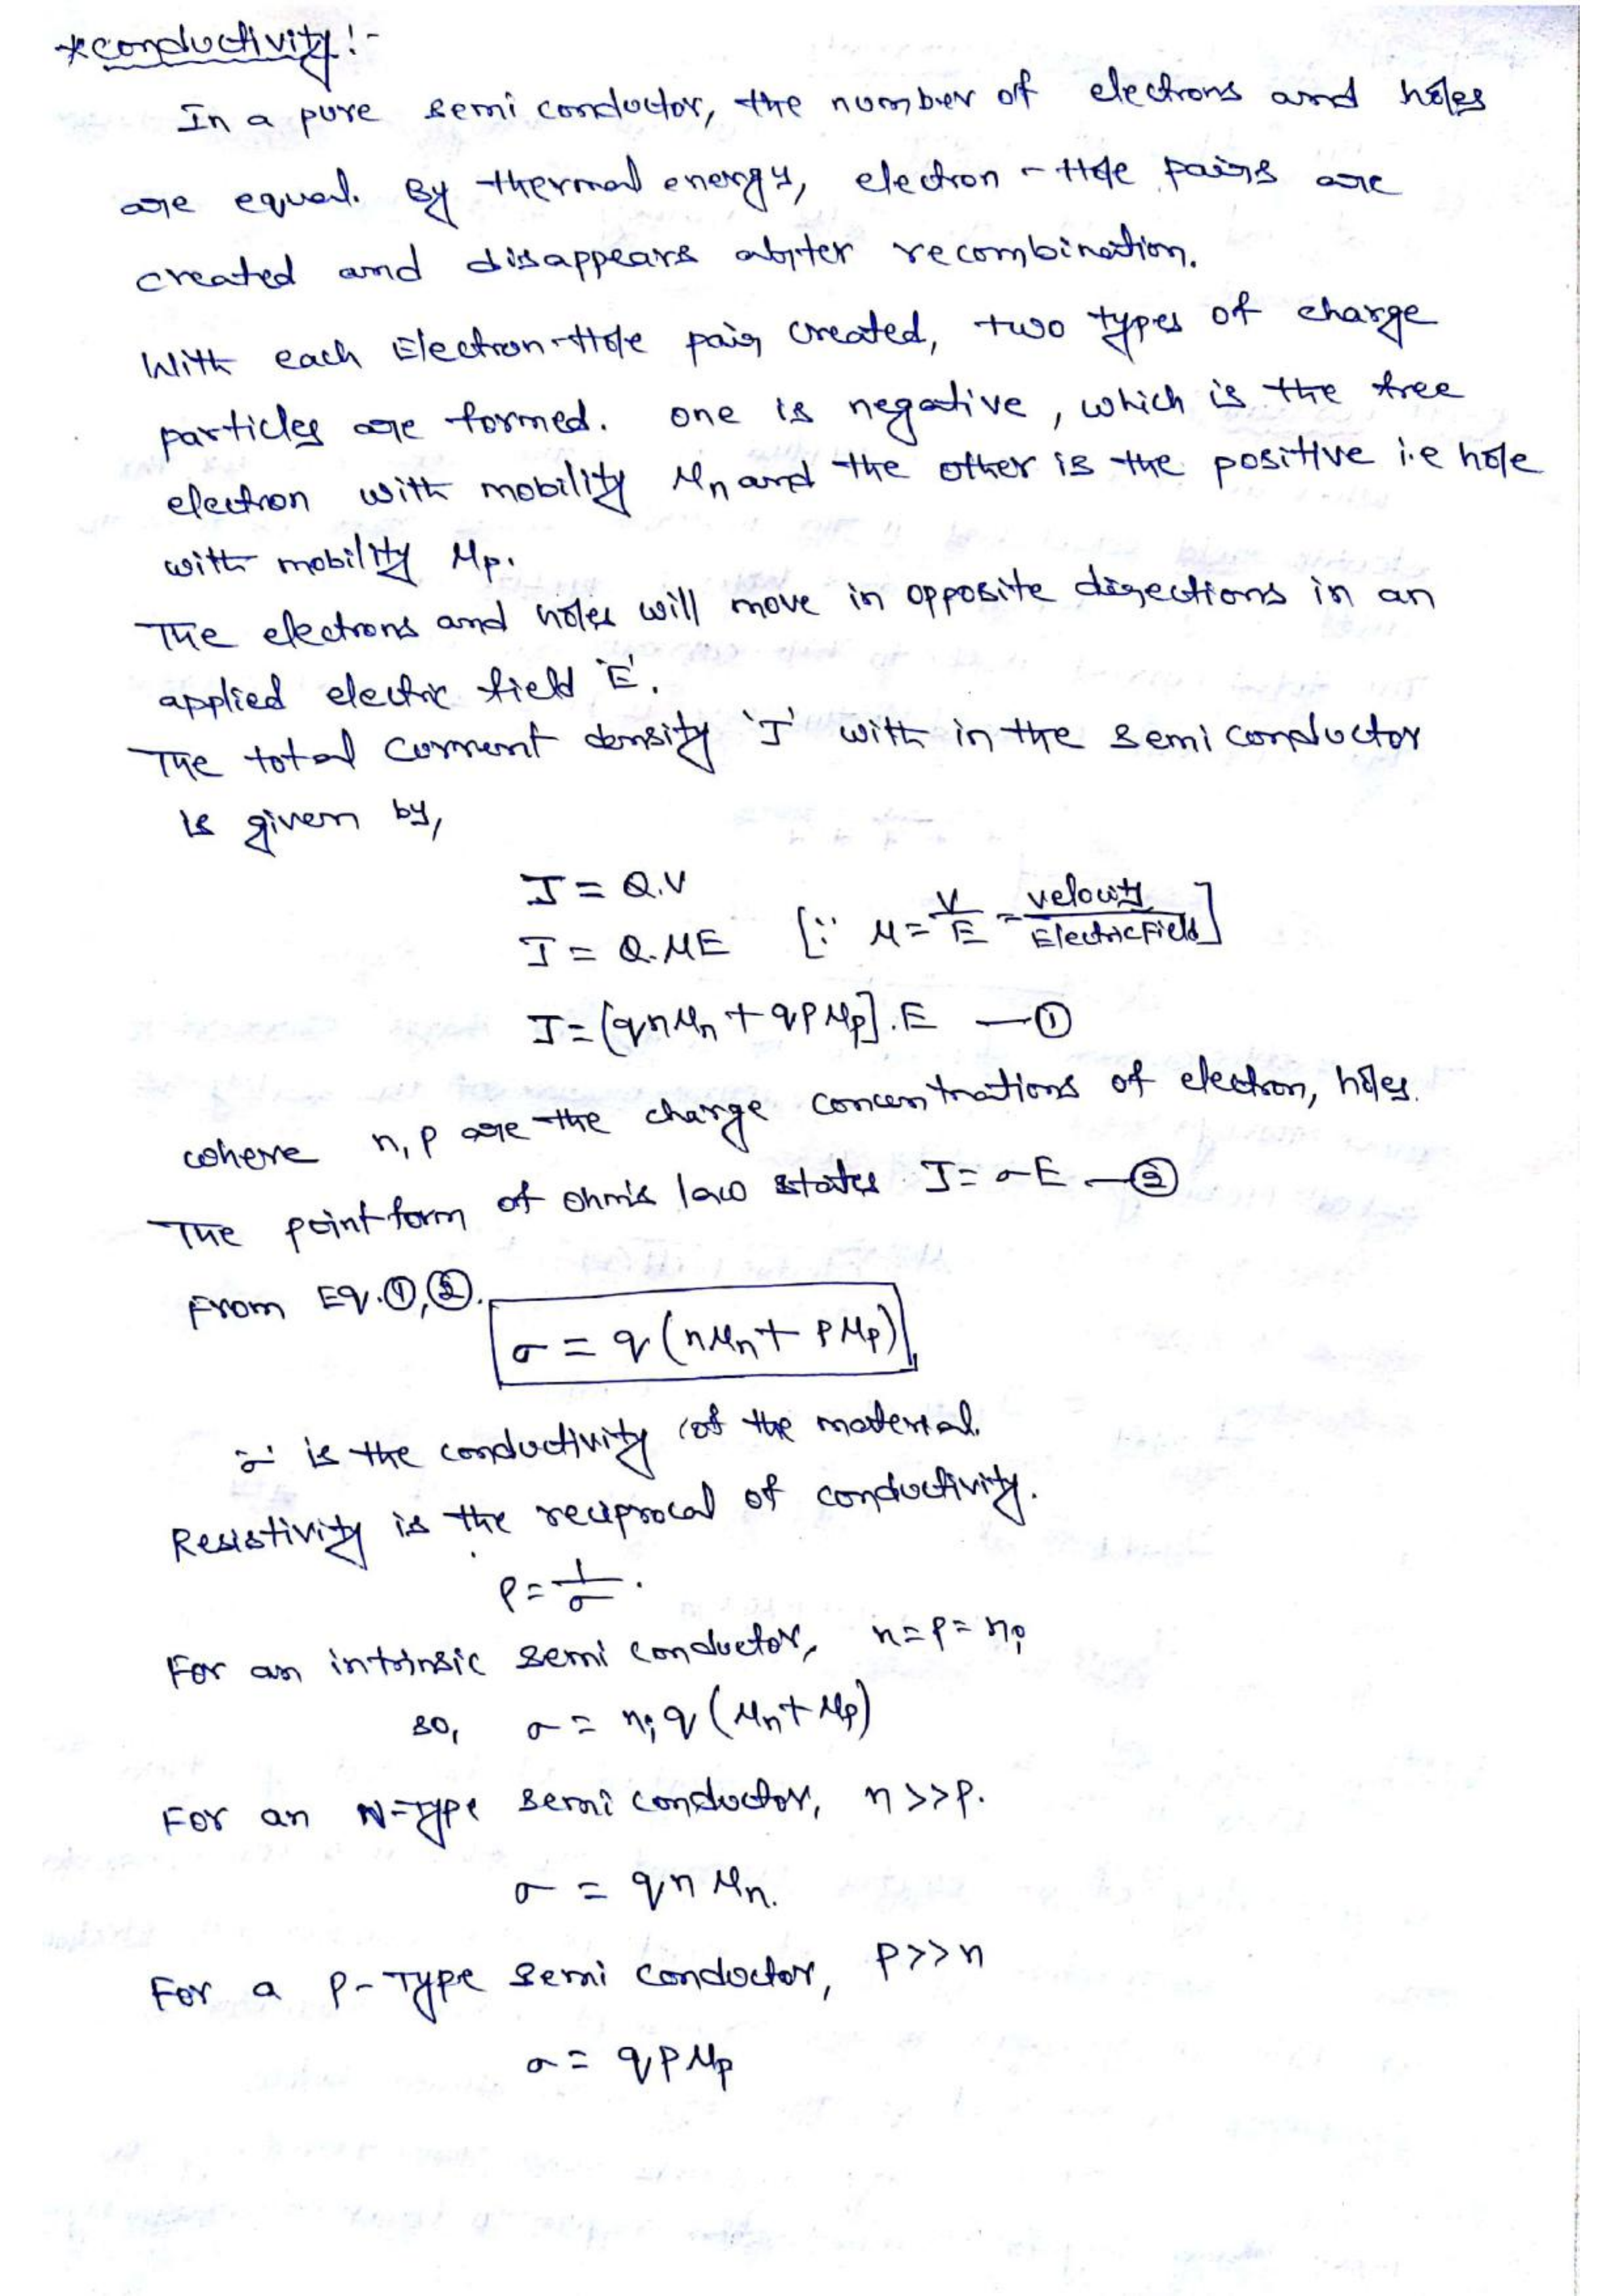 *conductivity:-
In a pure semi conductor, the number of electrons and holes
are equal. By thermal energy, electron-Hole pairs are
created and disappears after recombination.
With each Electron-Hole pair created, two types of charge
particles are formed. one is negative, which is the free
electron with mobility μn and the other is the positive i.e hole
with mobility μp.
The electrons and holes will move in opposite directions in an
applied electric field 'E'.
The total current density 'J' with in the semi conductor
is given by,
J = Q.V
J = Q.μE [∵ μ = V/E = velocity/Electric Field]
J = [qnμn + qpμp].E —①
where n, p are the charge concentrations of electron, holes.
The point form of ohm's law states J = σE —②
From Eq.①,②.
σ = q(nμn + pμp)
σ is the conductivity of the material.
Resistivity is the reciprocal of conductivity.
ρ = 1/σ.
For an intrinsic semi conductor, n=p=ni
so, σ = niq(μn+μp)
For an N-Type semi conductor, n>>p.
σ = qnμn.
For a P-Type semi conductor, p>>n
σ = qpμp